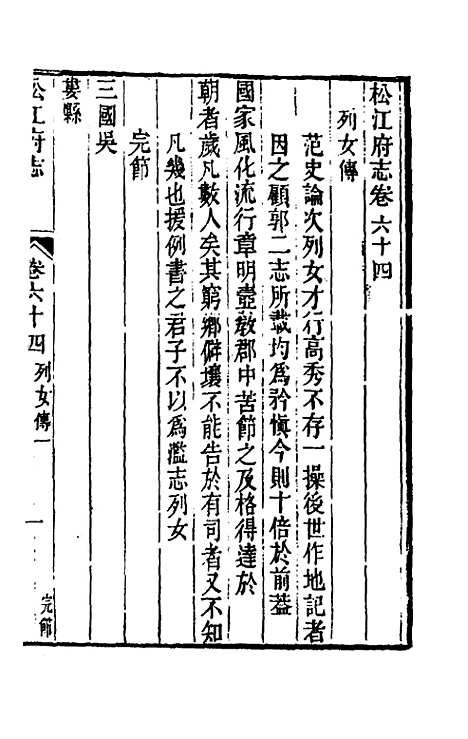 松江府志卷六十四
列女傳
范史論次列女才行高秀不存一操後世作地記者
因之顧郭二志所載均爲矜愼今則十倍於前葢
國家風化流行章明壼敎郡中苦節之及格得達於
朝者歲凡數人矣其窮鄉僻壤不能告於有司者又不知
凡幾也援例書之君子不以爲濫志列女
完節
三國吳
婁縣
松江府志
卷六十四
列女傳一
一
完節